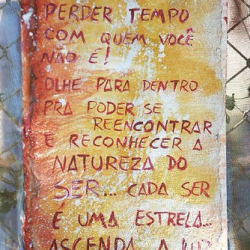 PERDER TEMPO
COM QUEM VOCÊ
NÃO É!
OLHE PARA DENTRO
PRA PODER SE
REENCONTRAR
E RECONHECER A
NATUREZA DO
SER... CADA SER
É UMA ESTRELA...
ASCENDA A LUZ